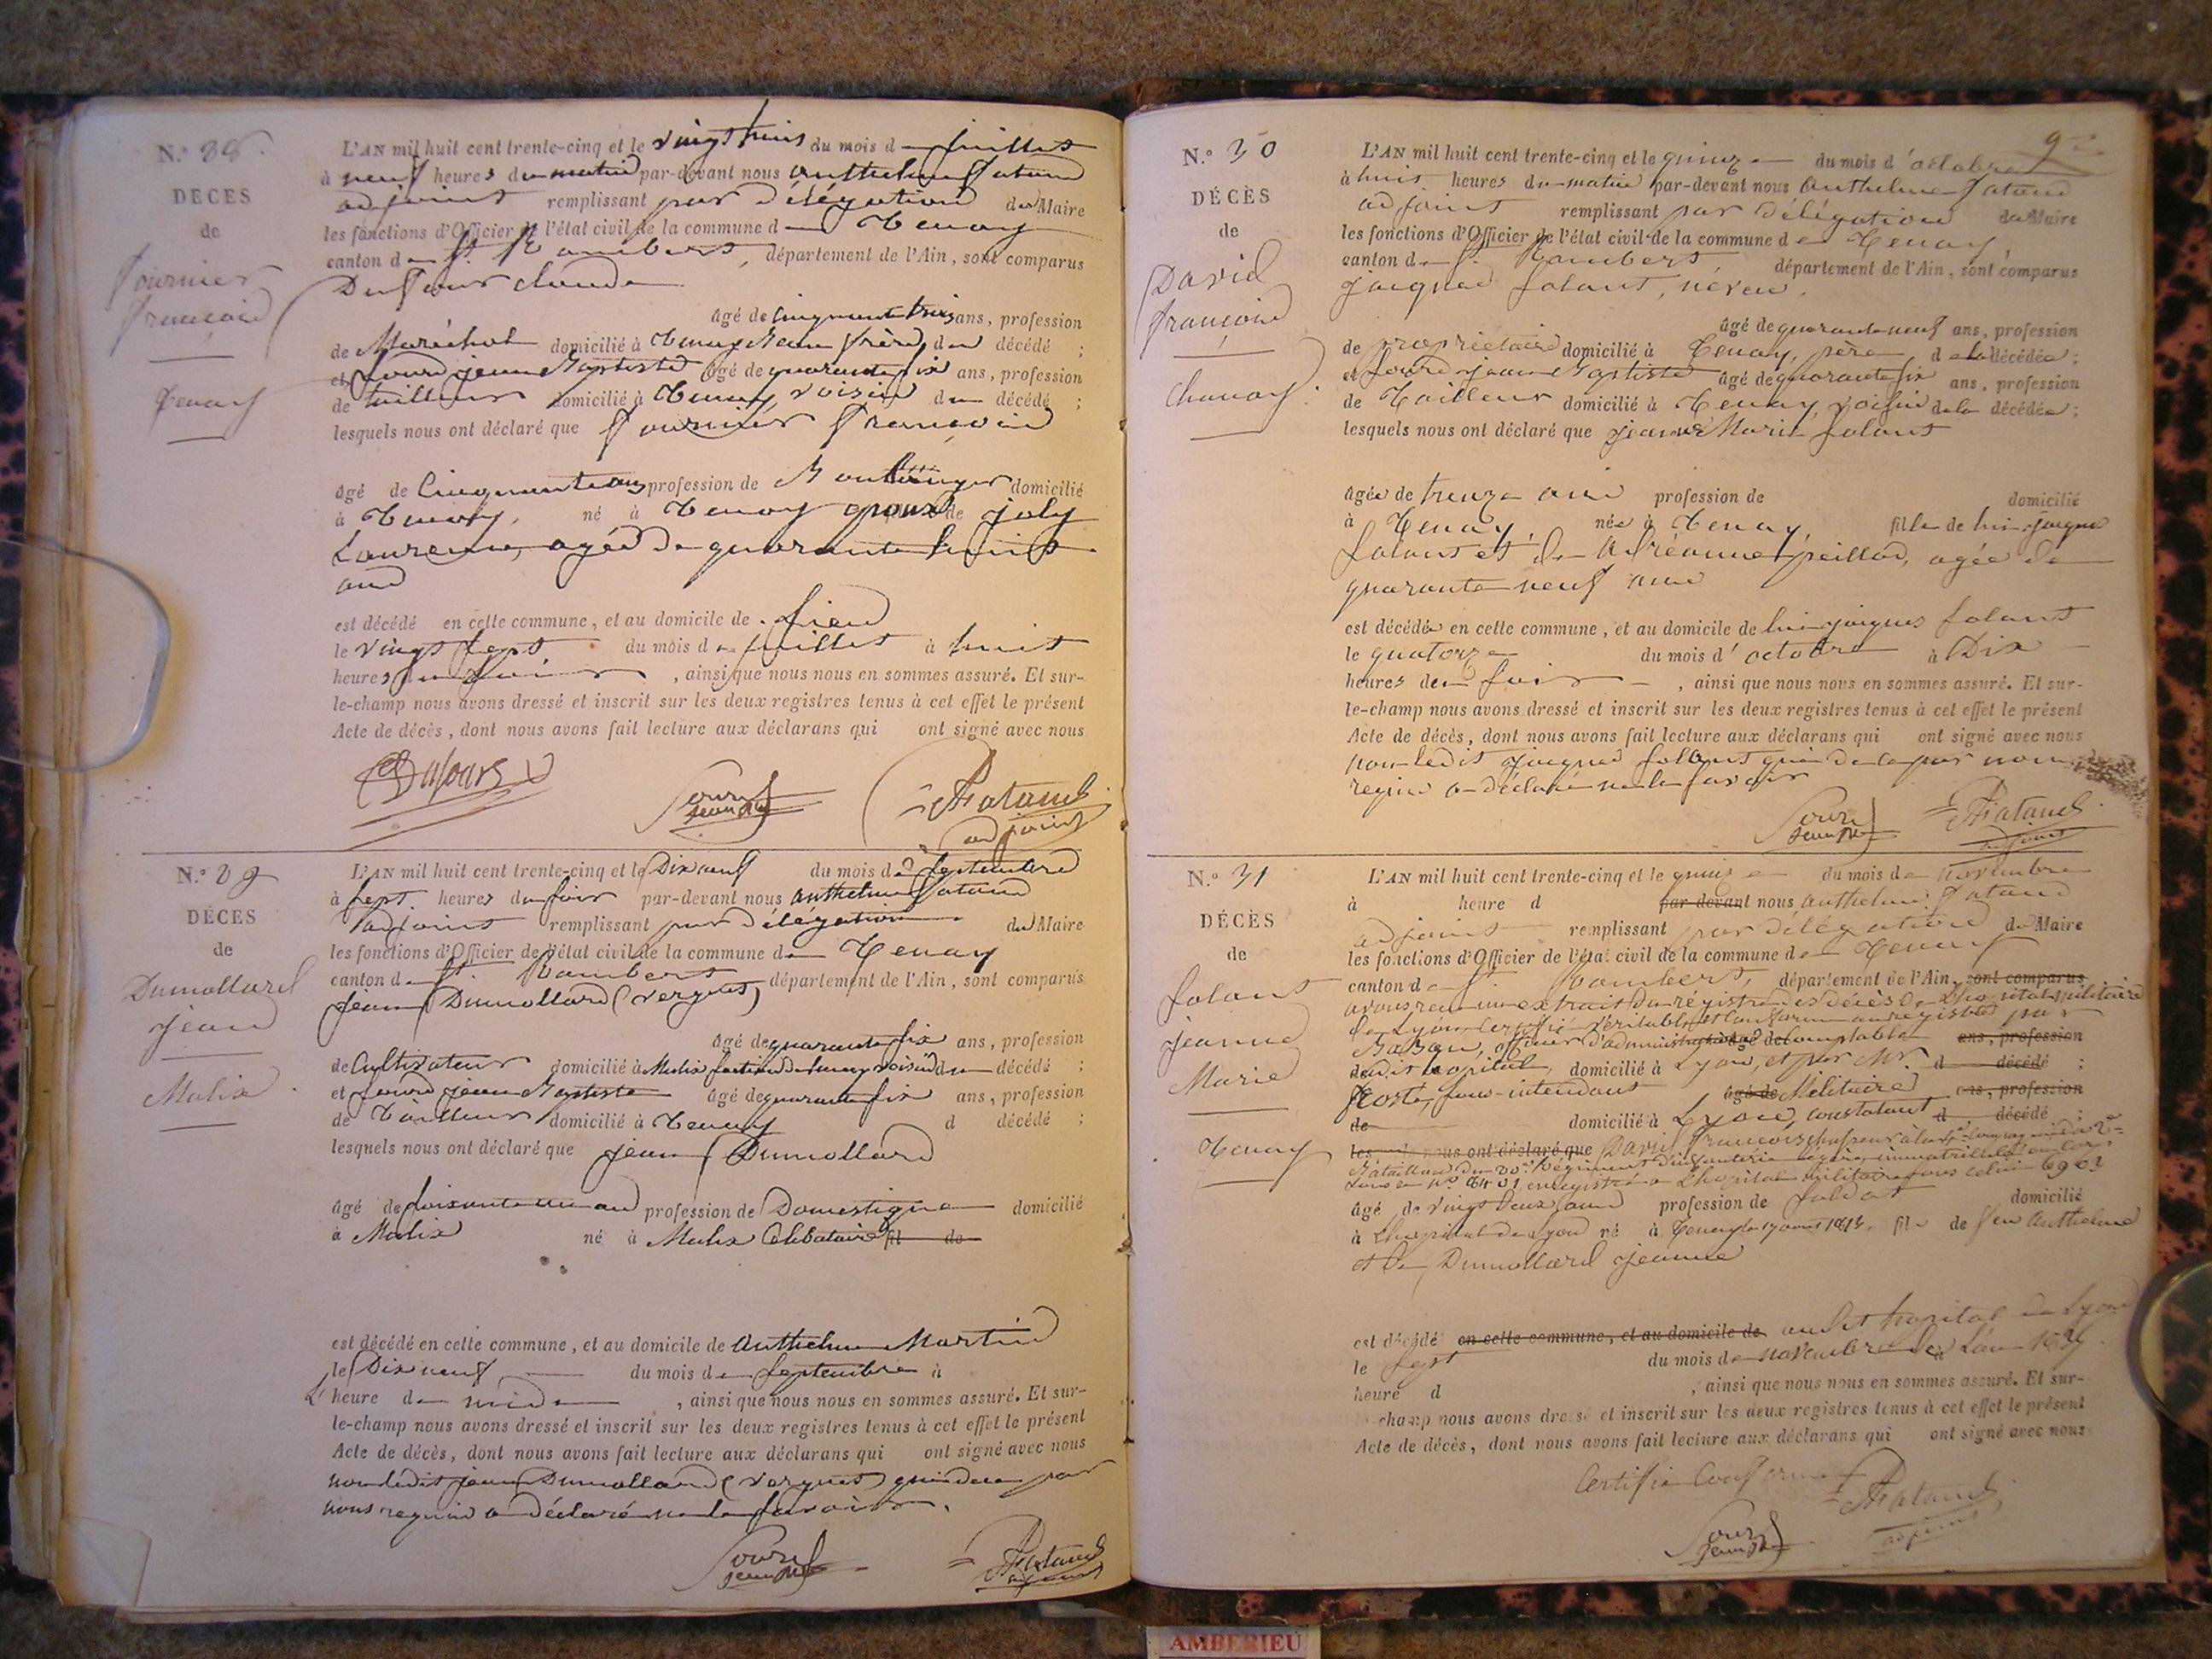 N.° 28.
DÉCÈS
de
Fournier
François
Tenay
L'AN mil huit cent trente-cinq et le vingt huis du mois de juillet
à neuf heures du matin par-devant nous anthelme Fataud
adjoint remplissant par délégation du Maire
les fonctions d'Officier de l'état civil de la commune de Tenay
canton de St. Rambert, département de l'Ain, sont comparus
Dufour claude
âgé de cinquante trois ans, profession
de Maréchal domicilié à Tenay, Beau frère du décédé ;
et Jean Baptiste âgé de quarante six ans, profession
de tailleur domicilié à Tenay, voisin du décédé ;
lesquels nous ont déclaré que Fournier François
âgé de Cinquante ans profession de Boulanger domicilié
à Tenay, né à Tenay époux de joly
Laurence, agée de quarante huit
ans
est décédé en cette commune, et au domicile de sien
le vingt sept du mois de juillet à huit
heures du soir, ainsi que nous nous en sommes assuré. Et sur-
le-champ nous avons dressé et inscrit sur les deux registres tenus à cet effet le présent
Acte de décès, dont nous avons fait lecture aux déclarans qui ont signé avec nous
Dufours
Jean Bte
Fataud
adjoint
N.° 29
DÉCÈS
de
Dumollard
jean
Malix
L'AN mil huit cent trente-cinq et le Dix neuf du mois de Septembre
à sept heures du soir par-devant nous anthelme Fataud
adjoint remplissant par délégation du Maire
les fonctions d'Officier de l'état civil de la commune de Tenay
canton de St. Rambert département de l'Ain, sont comparus
Jean Dumollard (vergues)
âgé de quarante six ans, profession
de Cultivateur domicilié à Malix section de tenay voisin du décédé ;
et Jean Baptiste âgé de quarante six ans, profession
de Tailleur domicilié à Tenay d décédé ;
lesquels nous ont déclaré que jean Dumollard
âgé de soixante un ans profession de Domestique domicilié
à Malix né à Malix Célibataire fil de
est décédé en cette commune, et au domicile de anthelme Martin
le Dix neuf du mois de Septembre à
L' heure de midi, ainsi que nous nous en sommes assuré. Et sur-
le-champ nous avons dressé et inscrit sur les deux registres tenus à cet effet le présent
Acte de décès, dont nous avons fait lecture aux déclarans qui ont signé avec nous
non ledit jean Dumollard (vergues) qui de ce par
nous requis a déclaré ne le savoir.
Jean Bte
Fataud
adjoint
9
N.° 30
DÉCÈS
de
David
françois
Chanay.
L'AN mil huit cent trente-cinq et le quinze du mois d'octobre
à huit heures du matin par-devant nous Anthelme Fataud
adjoint remplissant par délégation du Maire
les fonctions d'Officier de l'état civil de la commune de Tenay,
canton de St. Rambert, département de l'Ain, sont comparus
jacques folant, neveu,
âgé de quarante neuf ans, profession
de propriétaire domicilié à Tenay, père de la décédée ;
et jean Baptiste âgé de quarante six ans, profession
de Tailleur domicilié à Tenay, voisin de la décédée ;
lesquels nous ont déclaré que jeanne Marie folant
âgée de treize ans profession de domicilié
à Tenay, née à Tenay, fille de lui jacques
folant et de Andréanne peillod, agée de
quarante neuf ans
est décédée en cette commune, et au domicile de lui jacques folant
le quatorze du mois d'octobre à Dix
heures du soir, ainsi que nous nous en sommes assuré. Et sur-
le-champ nous avons dressé et inscrit sur les deux registres tenus à cet effet le présent
Acte de décès, dont nous avons fait lecture aux déclarans qui ont signé avec nous
non ledit jacques folant qui de ce par nous
requis a déclaré ne le savoir
Jean Bte
Fataud
adjoint
N.° 31
DÉCÈS
de
folant
jeanne
Marie
Tenay
L'AN mil huit cent trente-cinq et le quinze du mois de novembre
à heure d par devant nous anthelme Fataud
adjoint remplissant par délégation du Maire
les fonctions d'Officier de l'état civil de la commune de Tenay
canton de St. Rambert, département de l'Ain, sont comparus
avons reçu un extrait du régistre des décès de L'hopital Militaire
de Lyon Certifié véritable et Conforme au registre par
officier d'administration âgé de comptable ans, profession
dudit hopital, domicilié à Lyon, et par Mr. d décédé ;
sous-intendant âgé de Militaire ans, profession
de domicilié à Lyon, constatant d décédé ;
lesquels nous ont déclaré que David François chasseur à la compagnie du 2e
Bataillon du Régiment d'infanterie légère immatriculé
sous le No. enregistré à L'hopital militaire sous celui 6903
âgé de vingt deux ans profession de soldat domicilié
à L'hopital de Lyon né à Tenay le fils de feu Anthelme
et de Dumollard jeanne
est décédé en cette commune, et au domicile de audit hopital de Lyon
le sept du mois de novembre de L'an 1835
heure d, ainsi que nous nous en sommes assuré. Et sur-
le-champ nous avons dressé et inscrit sur les deux registres tenus à cet effet le présent
Acte de décès, dont nous avons fait lecture aux déclarans qui ont signé avec nous
Certifié Conforme
Fataud
adjoint
Jean Bte
AMBERIEU